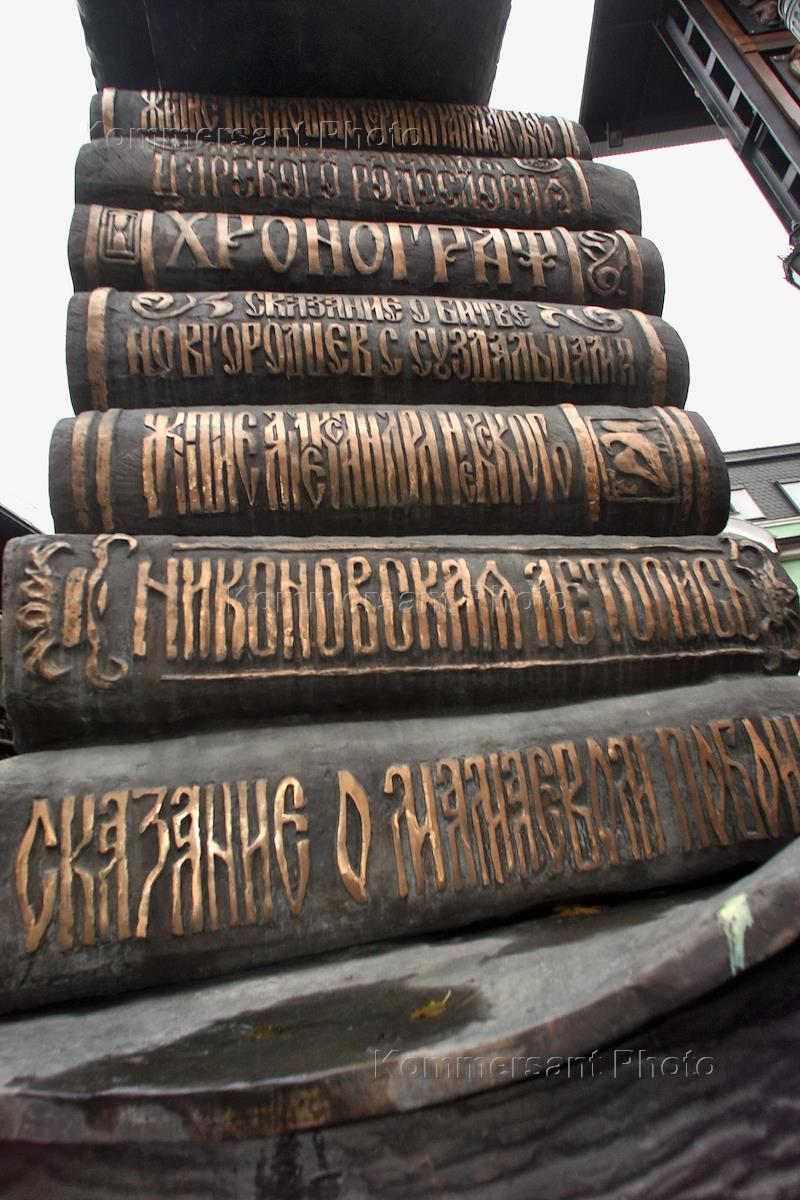 Kommersant Photo
ЖИТИЕ
ЦАРСКОГО РОДОСЛОВИЯ
ХРОНОГРАФ
СКАЗАНИЕ О БИТВЕ
НОВГОРОДЦЕВ С СУЗДАЛЬЦАМИ
ЖИТИЕ АЛЕКСАНДРА НЕВСКОГО
НИКОНОВСКАЯ ЛЕТОПИСЬ
Kommersant Photo
СКАЗАНИЕ О МАМАЕВОМ ПОБОИ
Kommersant Photo